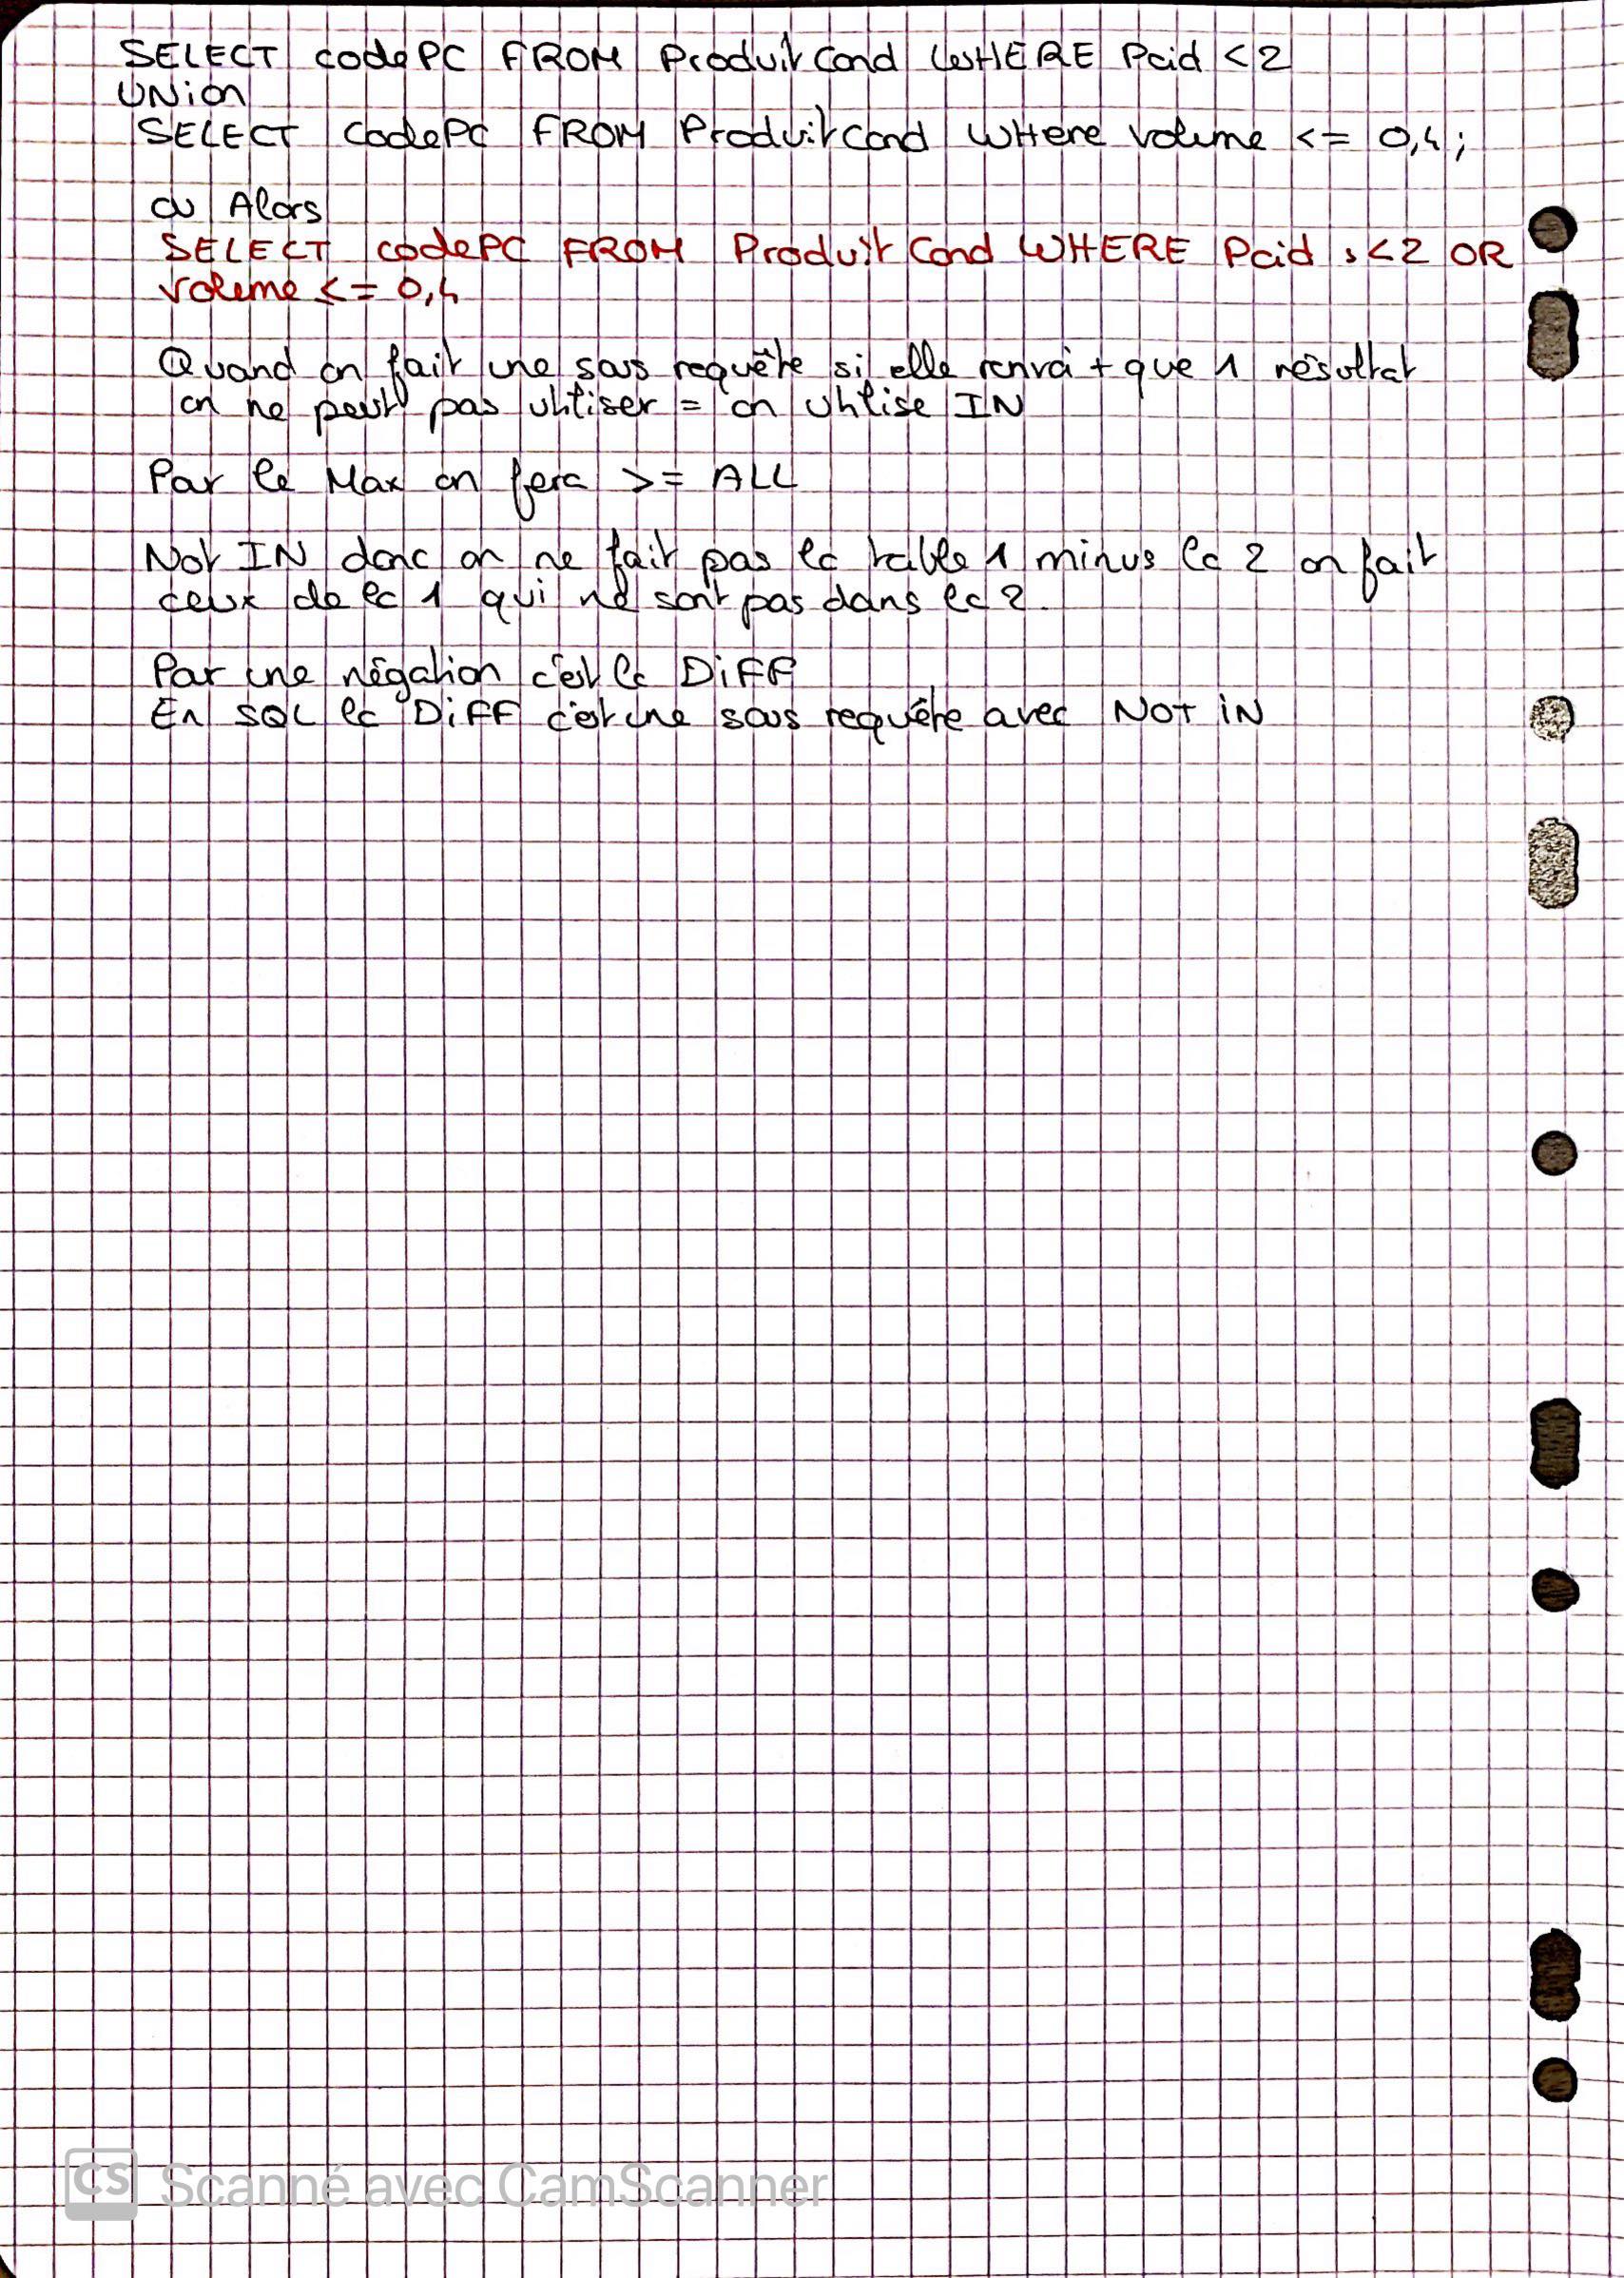 SELECT codePC FROM ProduitCond WHERE Poid <2
UNion
SELECT codePC FROM ProduitCond WHere volume <= 0,4;
ou Alors
SELECT codePC FROM ProduitCond WHERE Poid s<2 OR
volume <= 0,4
Quand on fait une sous requête si elle renvoi + que 1 résultat
on ne peut pas utiliser = on utilise IN
Pour le Max on fera >= ALL
Not IN donc on ne fait pas la table 1 minus la 2 on fait
ceux de la 1 qui ne sont pas dans la 2.
Pour une négation c'est la DiFF
En SQL la DiFF c'est une sous requête avec NOT iN
CS Scanné avec CamScanner